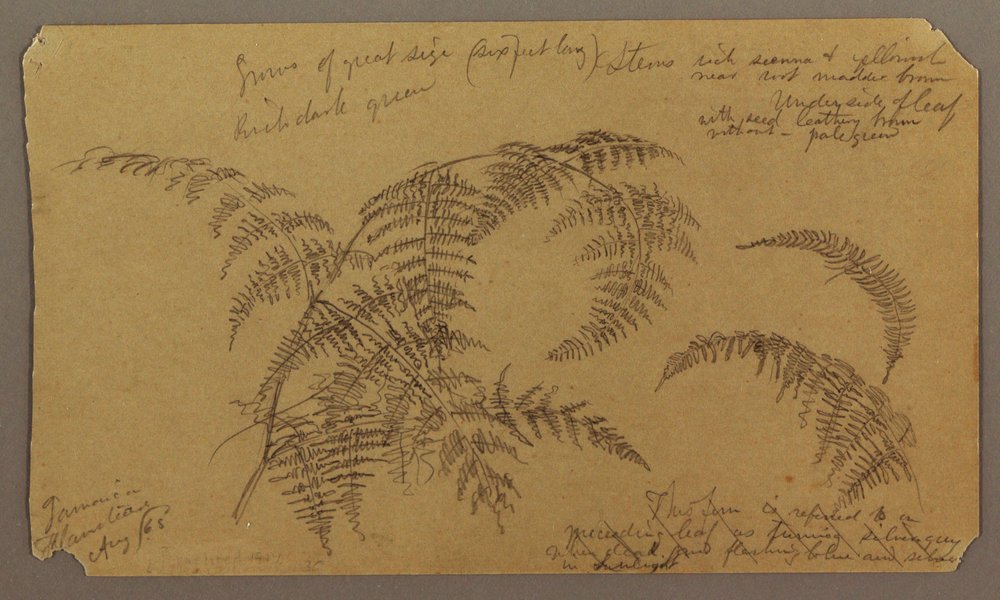 Grows of great size (six feet long)
Rich dark green
Stems rich sienna & yellowish
near root madder brown
Underside of leaf
with seed leathery brown
without - pale green
Jamaica
Aug /65
This fern is referred to on
preceeding leaf as turning silver grey
when dead and flaming blue and silver
in sunlight